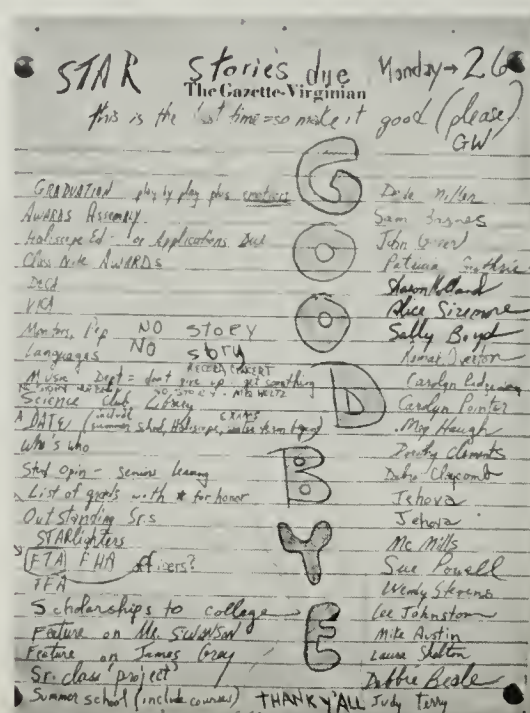 STAR Stories due Monday → 26
The Gazette-Virginian
this is the last time = so make it good (please)
GW
GOODBYE
GRADUATION play by play plus
AWARDS Assembly
Ed - or Applications Due
Class Nite AWARDs
DECA
VICA
Monitors, Pep NO STORY
Languages NO story
RECORD CONCERT
Music Dept = don't give up - get something
Science Club Library
EXAMS
A DATE / (summer school,
Who's who
Stud Opin - seniors leaving
List of grads with * for honor
Outstanding Srs
STARlighters
FTA FHA officers?
FFA
Scholarships to collage
Feature on Mr. SWANSON
Feature on James Gray
Sr. class project
Summer school (include courses)
THANK Y'ALL
Dale Miller
Sam Barnes
John Greer
Patricia Guthrie
Sharon Holland
Alice Sizemore
Sally Boyd
Overton
Carolyn
Carolyn Pointer
Meg Haugh
Dorothy Clements
Debra Claycomb
Jehova
Jehova
Mc Mills
Sue Powell
Wendy Stevens
Lee Johnston
Mike Austin
Laura Shelton
Debbie Beale
Judy Terry